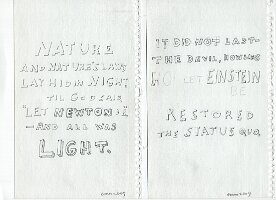 NATURE
AND NATURE'S LAWS
LAY HID IN NIGHT,
TIL GOD SAID,
"LET NEWTON BE"
—AND ALL WAS
LIGHT.
IT DID NOT LAST—
THE DEVIL, HOWLING
HO LET EINSTEIN
BE
RESTORED
THE STATUS QUO.